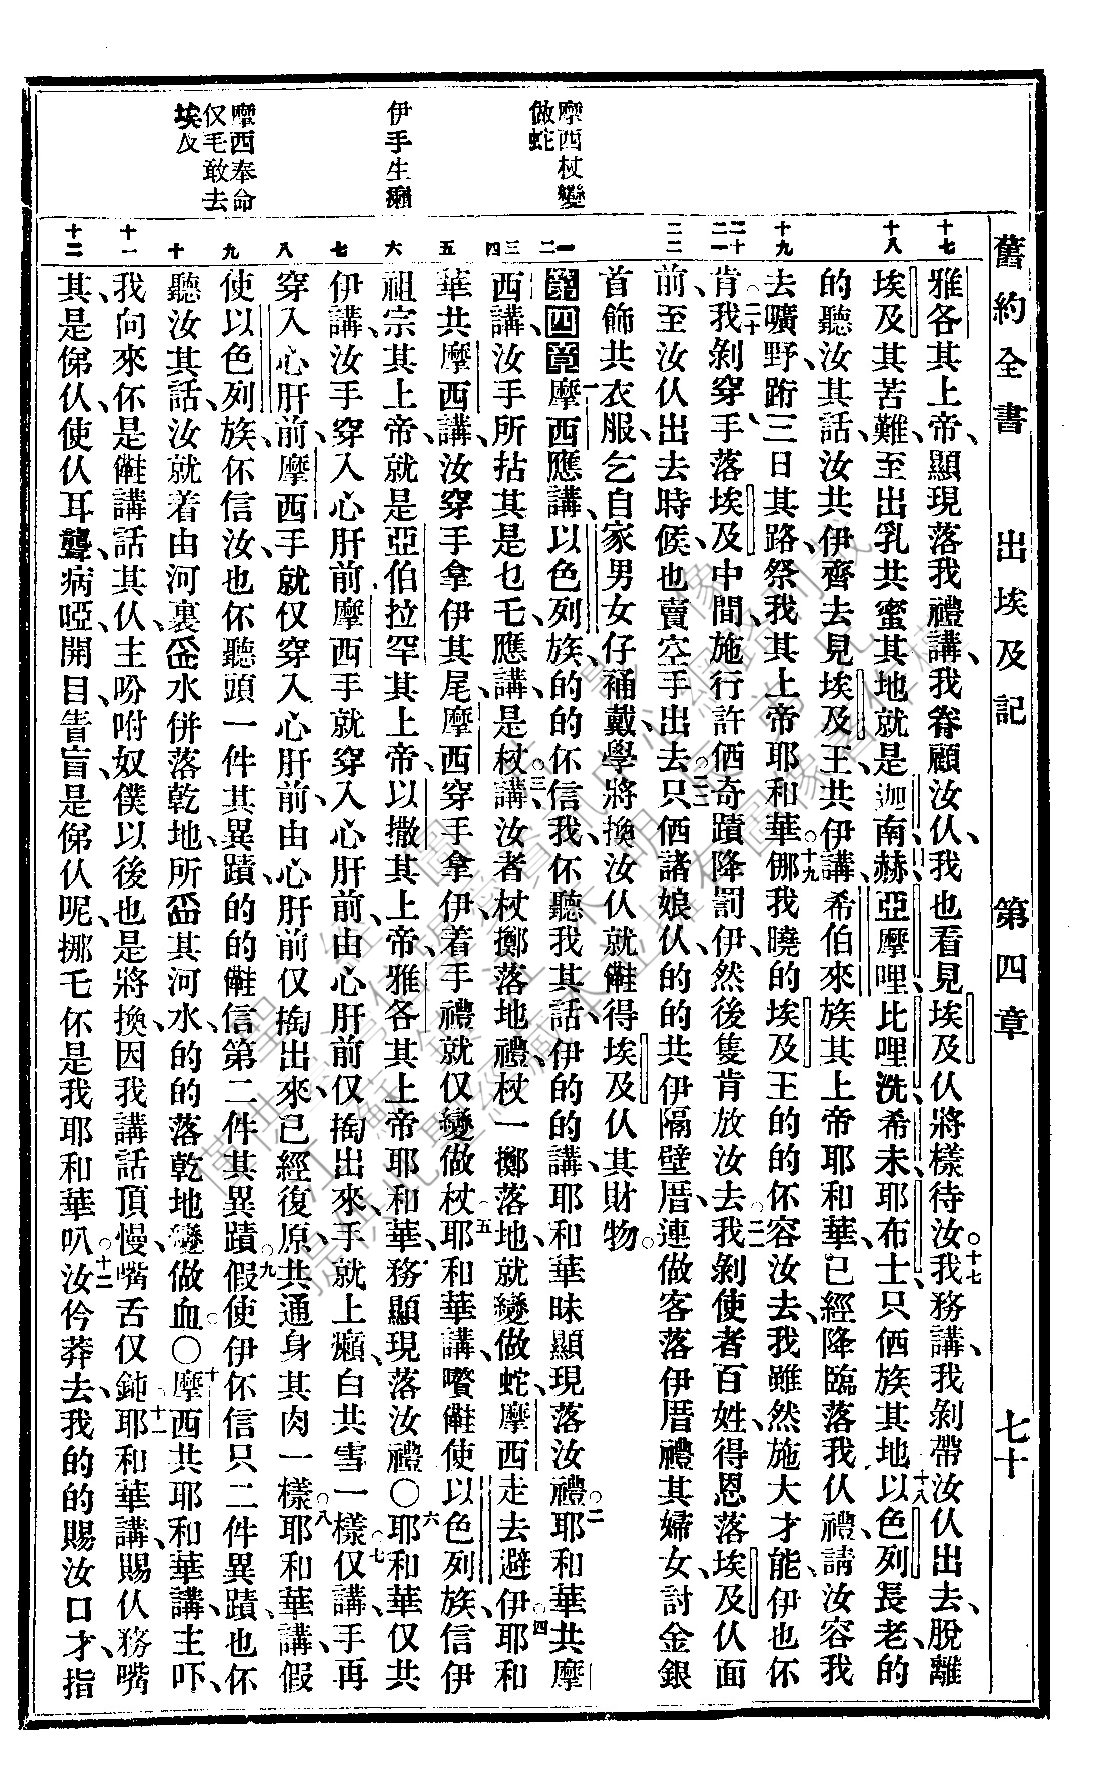 舊約全書　出埃及記　第四章　七十
十七
雅各其上帝、顯現落我禮講、我眷顧汝仈、我也看見埃及仈將樣待汝。十七我務講、我剝帶汝仈出去、脫離
十八
埃及其苦難、至出乳共蜜其地、就是迦南、赫、亞摩哩、比哩洗、希未、耶布士、只俩族其地。十八以色列長老的
的聽汝其話、汝共伊齊去見埃及王、共伊講、希伯來族其上帝耶和華、已經降臨落我仈禮、請汝容我
十九
去曠野跡三日其路、祭我其上帝耶和華。十九挪我曉的埃及王的的伓容汝去、我雖然施大才能、伊也伓
二十
二一
肯。二十我剝穿手落埃及中間、施行許俩奇蹟、降罰伊、然後隻肯放汝去。二一我剝使者百姓得恩落埃及仈面
二二
前、至汝仈出去時候、也賣空手出去。二二只俩諸娘仈的的共伊隔壁厝、連做客落伊厝禮其婦女、討金銀
首飾共衣服、乞自家男女仔禙戴、學將換汝仈就䧹得埃及仈其財物。
摩西杖變
做蛇
一
二
第四章　一摩西應講、以色列族的的伓信我、伓聽我其話、伊的的講、耶和華昧顯現落汝禮。二耶和華共摩
三
四
西講、汝手所拈其是乜毛、應講、是杖。三講、汝者杖擲落地禮、杖一擲落地、就變做蛇、摩西走去避伊。四耶和
五
華共摩西講、汝穿手拿伊其尾、摩西穿手拿伊、着手禮就仅變做杖。五耶和華講、嚽使以色列族、信伊
伊手生癩
六
祖宗其上帝、就是亞伯拉罕其上帝、以撒其上帝、雅各其上帝耶和華、務顯現落汝禮○六耶和華仅共
七
伊講、汝手穿入心肝前、摩西手就穿入心肝前、由心肝前仅掏出來、手就上癩、白共雪一樣。七仅講、手再
八
穿入心肝前、摩西手就仅穿入心肝前、由心肝前仅掏出來、已經復原、共通身其肉一樣。八耶和華講、假
摩西奉命
仅毛敢去
埃及
九
使以色列族伓信汝、也伓聽頭一件其異蹟、的的信第二件其異蹟。九假使伊伓信只二件異蹟、也伓
十
聽汝其話、汝就着由河裏水併落乾地、所其河水、的的落乾地變做血。○十摩西共耶和華講、主吓、
十一
我向來伓是講話其仈、主吩咐奴僕以後、也是將換、因我講話頂慢、嘴舌仅鈍。十一耶和華講、賜仈務嘴
十二
其是俤仈、使仈耳聾、病啞、開目、靑盲、是俤仈呢、挪乇伓是我耶和華叭。十二汝伶莽去、我的的賜汝口才、指